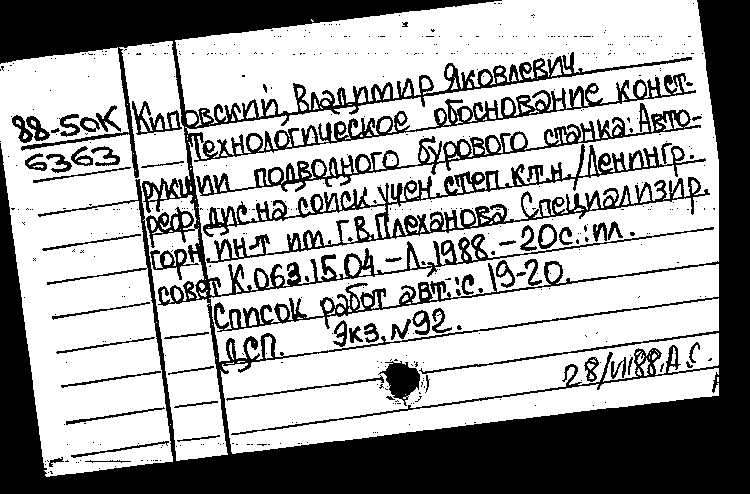 88-50К
6363
Киповский, Владимир Яковлевич.
Технологическое обоснование конст-
рукции подводного бурового станка: Авто-
реф. дис. на соиск. учен. степ. к.т.н. / Ленингр.
горн. ин-т им. Г.В. Плеханова. Специализир.
совет К.063.15.04. - Л., 1988. - 20с.: ил.
Список работ авт.: с. 19-20.
ДСП. Экз. N92.
28/VI88. А.С.